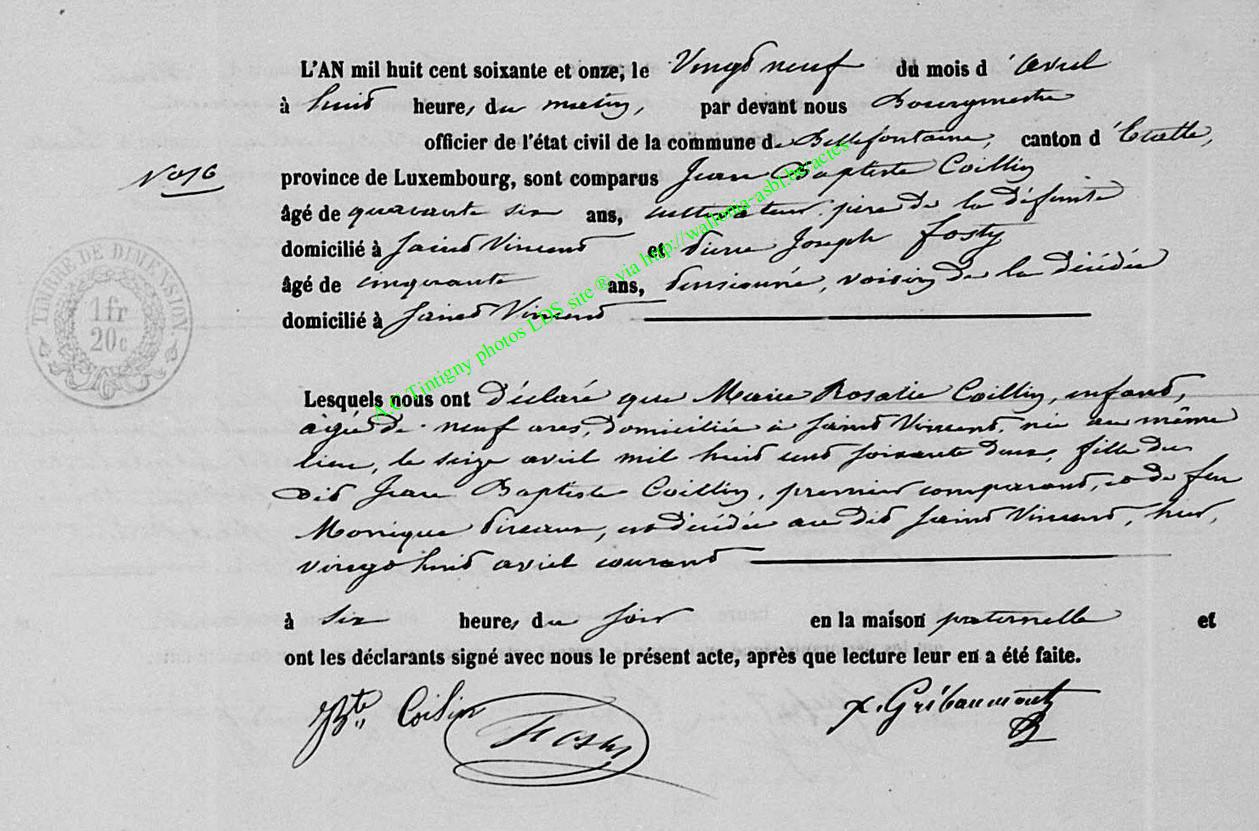 L'AN mil huit cent soixante et onze, le Vingt neuf du mois d'Avril
à huit heures du matin, par devant nous Bourgmestre
officier de l'état civil de la commune de Bellefontaine, canton d'Etalle,
No 16
province de Luxembourg, sont comparus Jean Baptiste Coillin
âgé de quarante six ans, cultivateur, père de la défunte
domicilié à Saint Vincent et Pierre Joseph Fosty
âgé de cinquante ans, Pensionné, voisin de la décédée
domicilié à Saint Vincent
TIMBRE DE DIMENSION
1 fr
20 c
Lesquels nous ont déclaré que Marie Rosalie Coillin, enfant,
âgée de neuf ans, domiciliée à Saint Vincent, née au même
lieu, le seize avril mil huit cent soixante deux, fille du
dit Jean Baptiste Coillin, premier comparant, et de feu
Monique, est décédée au dit Saint Vincent, hier,
vingt huit avril courant
à six heures du soir en la maison paternelle et
ont les déclarants signé avec nous le présent acte, après que lecture leur en a été faite.
JBte Coilin
Fosty
x. Gribaumont
A.C. Tintigny photos LDS site ® via http://wallonia-asbl.be/actes